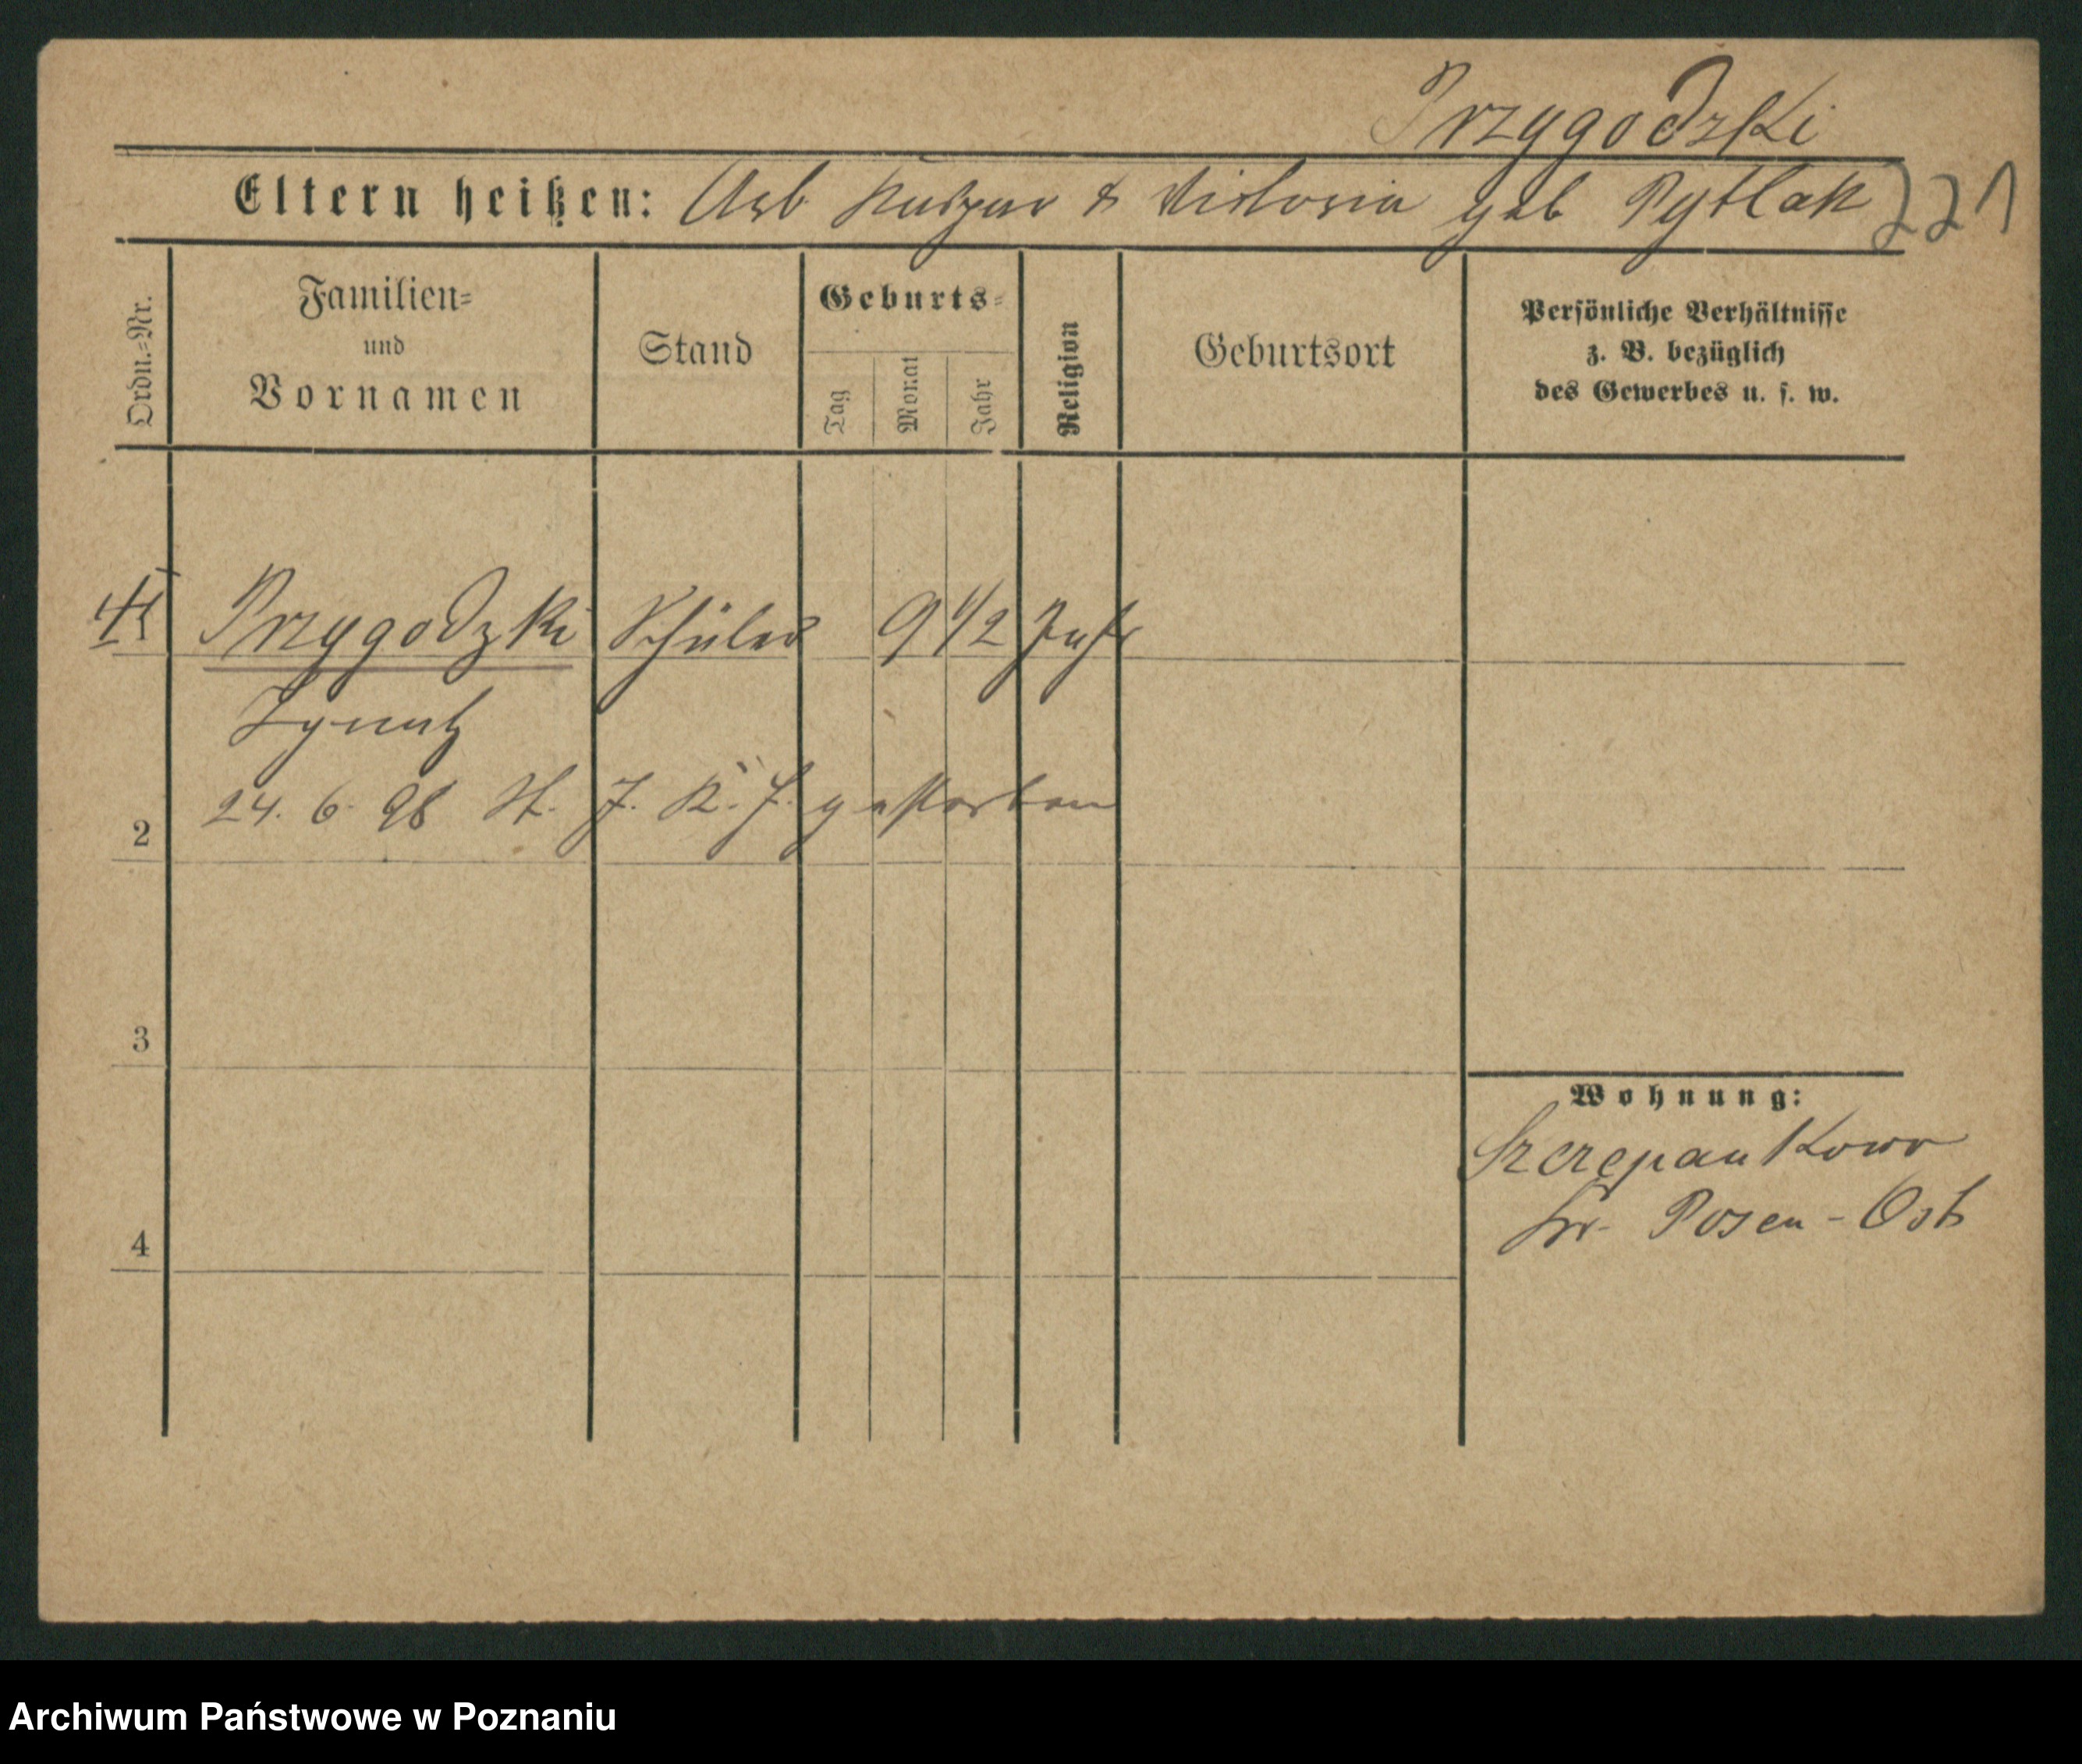 Przygodzki
Eltern heißen: Arb Kaspar & Victoria geb Pytlak 221
Ordn.=Nr.
Familien=
und
Vornamen
Stand
Geburts=
Tag
Monat
Jahr
Religion
Geburtsort
Persönliche Verhältnisse
z. B. bezüglich
des Gewerbes u. s. w.
Przygodzki Schüler 9 1/2 Jahr
Ignatz
24. 6. 98 St. J. K. H. gestorben
2
3
Wohnung:
Szczepankowo
Kr. Posen-Ost
4
Archiwum Państwowe w Poznaniu